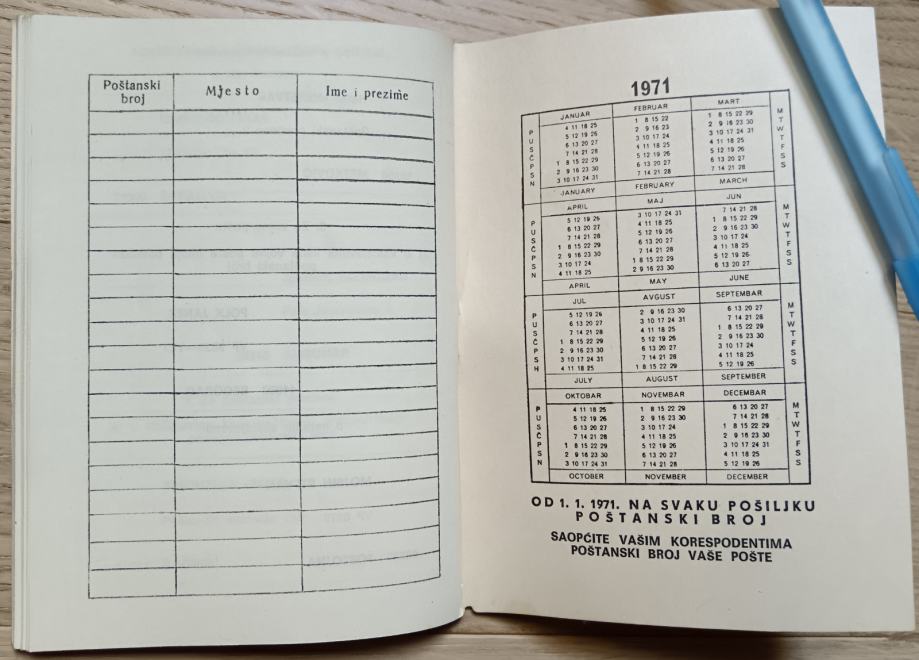 Poštanski broj Mjesto Ime i prezime
1971
JANUAR FEBRUAR MART
P 4 11 18 25 1 8 15 22 1 8 15 22 29 M
U 5 12 19 26 2 9 16 23 2 9 16 23 30 T
S 6 13 20 27 3 10 17 24 3 10 17 24 31 W
Č 7 14 21 28 4 11 18 25 4 11 18 25 T
P 1 8 15 22 29 5 12 19 26 5 12 19 26 F
S 2 9 16 23 30 6 13 20 27 6 13 20 27 S
N 3 10 17 24 31 7 14 21 28 7 14 21 28 S
JANUARY FEBRUARY MARCH
APRIL MAJ JUN
P 5 12 19 26 3 10 17 24 31 7 14 21 28 M
U 6 13 20 27 4 11 18 25 1 8 15 22 29 T
S 7 14 21 28 5 12 19 26 2 9 16 23 30 W
Č 1 8 15 22 29 6 13 20 27 3 10 17 24 T
P 2 9 16 23 30 7 14 21 28 4 11 18 25 F
S 3 10 17 24 1 8 15 22 29 5 12 19 26 S
N 4 11 18 25 2 9 16 23 30 6 13 20 27 S
APRIL MAY JUNE
JUL AVGUST SEPTEMBAR
P 5 12 19 26 2 9 16 23 30 6 13 20 27 M
U 6 13 20 27 3 10 17 24 31 7 14 21 28 T
S 7 14 21 28 4 11 18 25 1 8 15 22 29 W
Č 1 8 15 22 29 5 12 19 26 2 9 16 23 30 T
P 2 9 16 23 30 6 13 20 27 3 10 17 24 F
S 3 10 17 24 31 7 14 21 28 4 11 18 25 S
H 4 11 18 25 1 8 15 22 29 5 12 19 26 S
JULY AUGUST SEPTEMBER
OKTOBAR NOVEMBAR DECEMBAR
P 4 11 18 25 1 8 15 22 29 6 13 20 27 M
U 5 12 19 26 2 9 16 23 30 7 14 21 28 T
S 6 13 20 27 3 10 17 24 1 8 15 22 29 W
Č 7 14 21 28 4 11 18 25 2 9 16 23 30 T
P 1 8 15 22 29 5 12 19 26 3 10 17 24 31 F
S 2 9 16 23 30 6 13 20 27 4 11 18 25 S
N 3 10 17 24 31 7 14 21 28 5 12 19 26 S
OCTOBER NOVEMBER DECEMBER
OD 1. 1. 1971. NA SVAKU POŠILJKU
POŠTANSKI BROJ
SAOPĆITE VAŠIM KORESPODENTIMA
POŠTANSKI BROJ VAŠE POŠTE